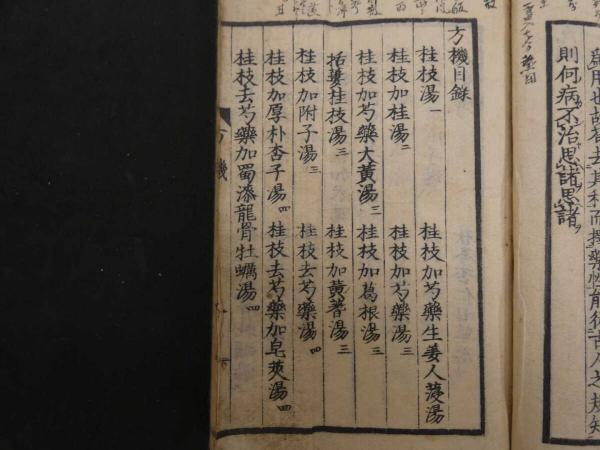 為用也故各去其利而擇藥性能從古人之規矩
則何病不治思諸思諸
方機目錄
桂枝湯一　桂枝加芍藥生姜人葠湯
桂枝加桂湯二　桂枝加芍藥湯三
桂枝加芍藥大黃湯三　桂枝加葛根湯三
括蔞桂枝湯三　桂枝加黃蓍湯三
桂枝加附子湯三　桂枝去芍藥湯四
桂枝加厚朴杏子湯四　桂枝去芍藥加皂莢湯四
桂枝去芍藥加蜀漆龍骨牡蠣湯四
方機